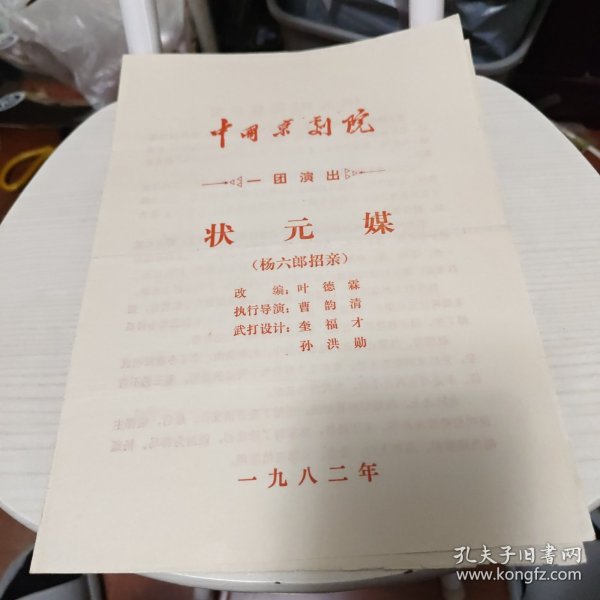 中国京剧院
一团演出
状元媒
(杨六郎招亲)
改编:叶德霖
执行导演:曹韵清
武打设计:奎福才
孙洪勋
一九八二年
孔夫子旧书网
www.kongfz.com